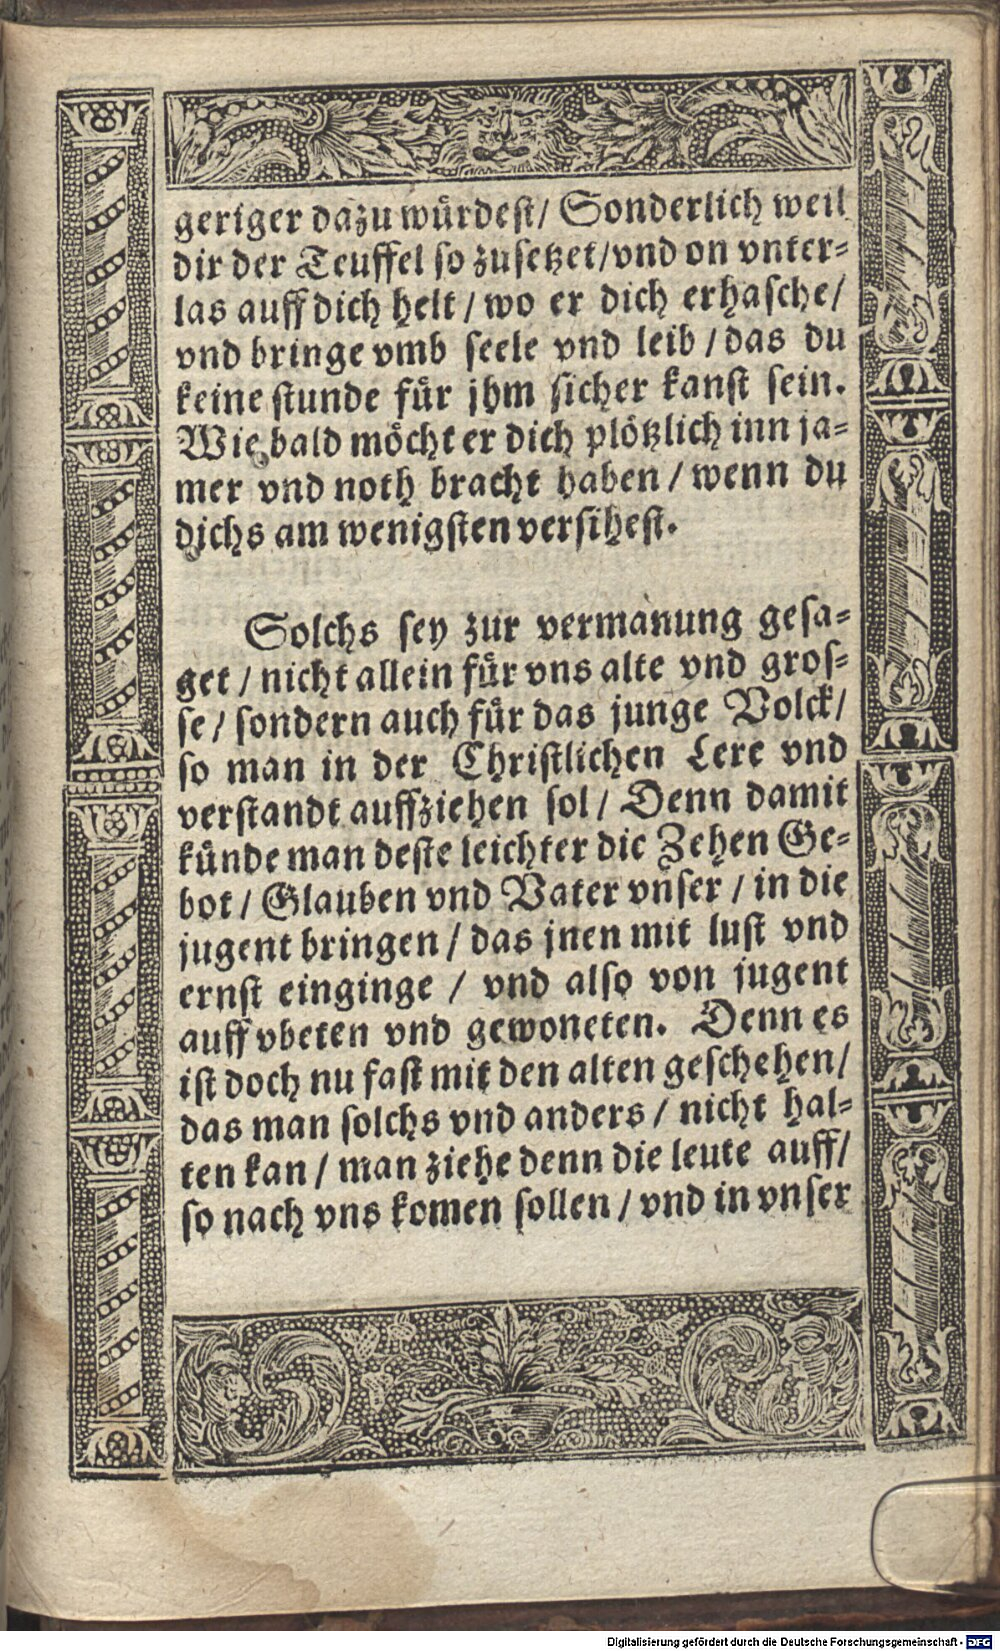 geriger dazu würdest/ Sonderlich weil
dir der Teuffel so zusetzet/vnd on vnter-
las auff dich helt / wo er dich erhasche/
vnd bringe vmb seele vnd leib / das du
keine stunde für jhm sicher kanst sein.
Wie bald möcht er dich plötzlich inn ja-
mer vnd noth bracht haben / wenn du
dichs am wenigsten versihest.
Solchs sey zur vermanung gesa-
get / nicht allein für vns alte vnd gros-
se / sondern auch für das junge Volck/
so man in der Christlichen Lere vnd
verstandt auffziehen sol / Denn damit
künde man deste leichter die Zehen Ge-
bot / Glauben vnd Vater vnser / in die
jugent bringen / das jnen mit lust vnd
ernst einginge / vnd also von jugent
auff vbeten vnd gewoneten. Denn es
ist doch nu fast mit den alten geschehen/
das man solchs vnd anders / nicht hal-
ten kan / man ziehe denn die leute auff/
so nach vns komen sollen / vnd in vnser
Digitalisierung gefördert durch die Deutsche Forschungsgemeinschaft - DFG